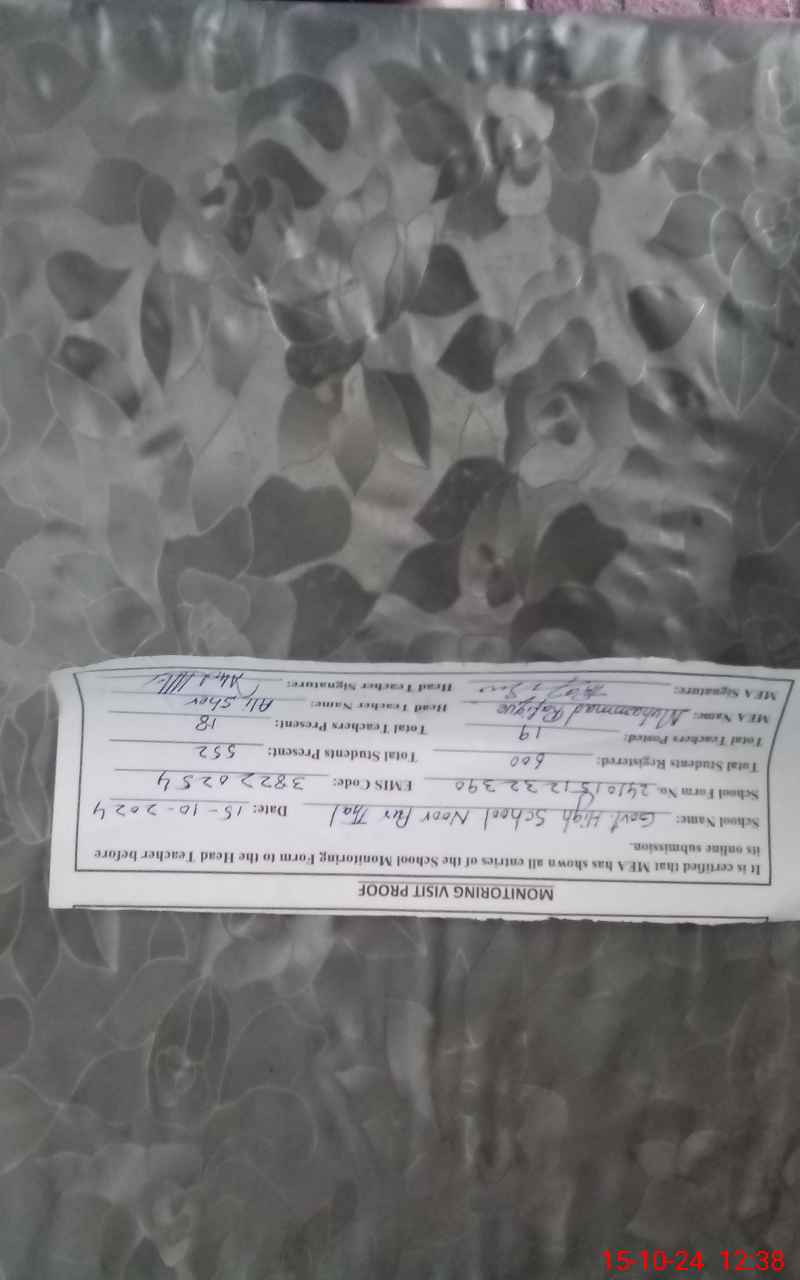 MONITORING VISIT PROOF
It is certified that MEA has shown all entries of the School Monitoring Form to the Head Teacher before
its online submission.
School Name: Govt. High School Noor Pur Thal Date: 15-10-2024
School Form No. 2410151232390 EMIS Code: 38220254
Total Students Registered: 600 Total Students Present: 552
Total Teachers Posted: 19 Total Teachers Present: 18
MEA Name: Muhammad Rafique Head Teacher Name: Ali Sher
MEA Signature: Head Teacher Signature:
15-10-24 12:38